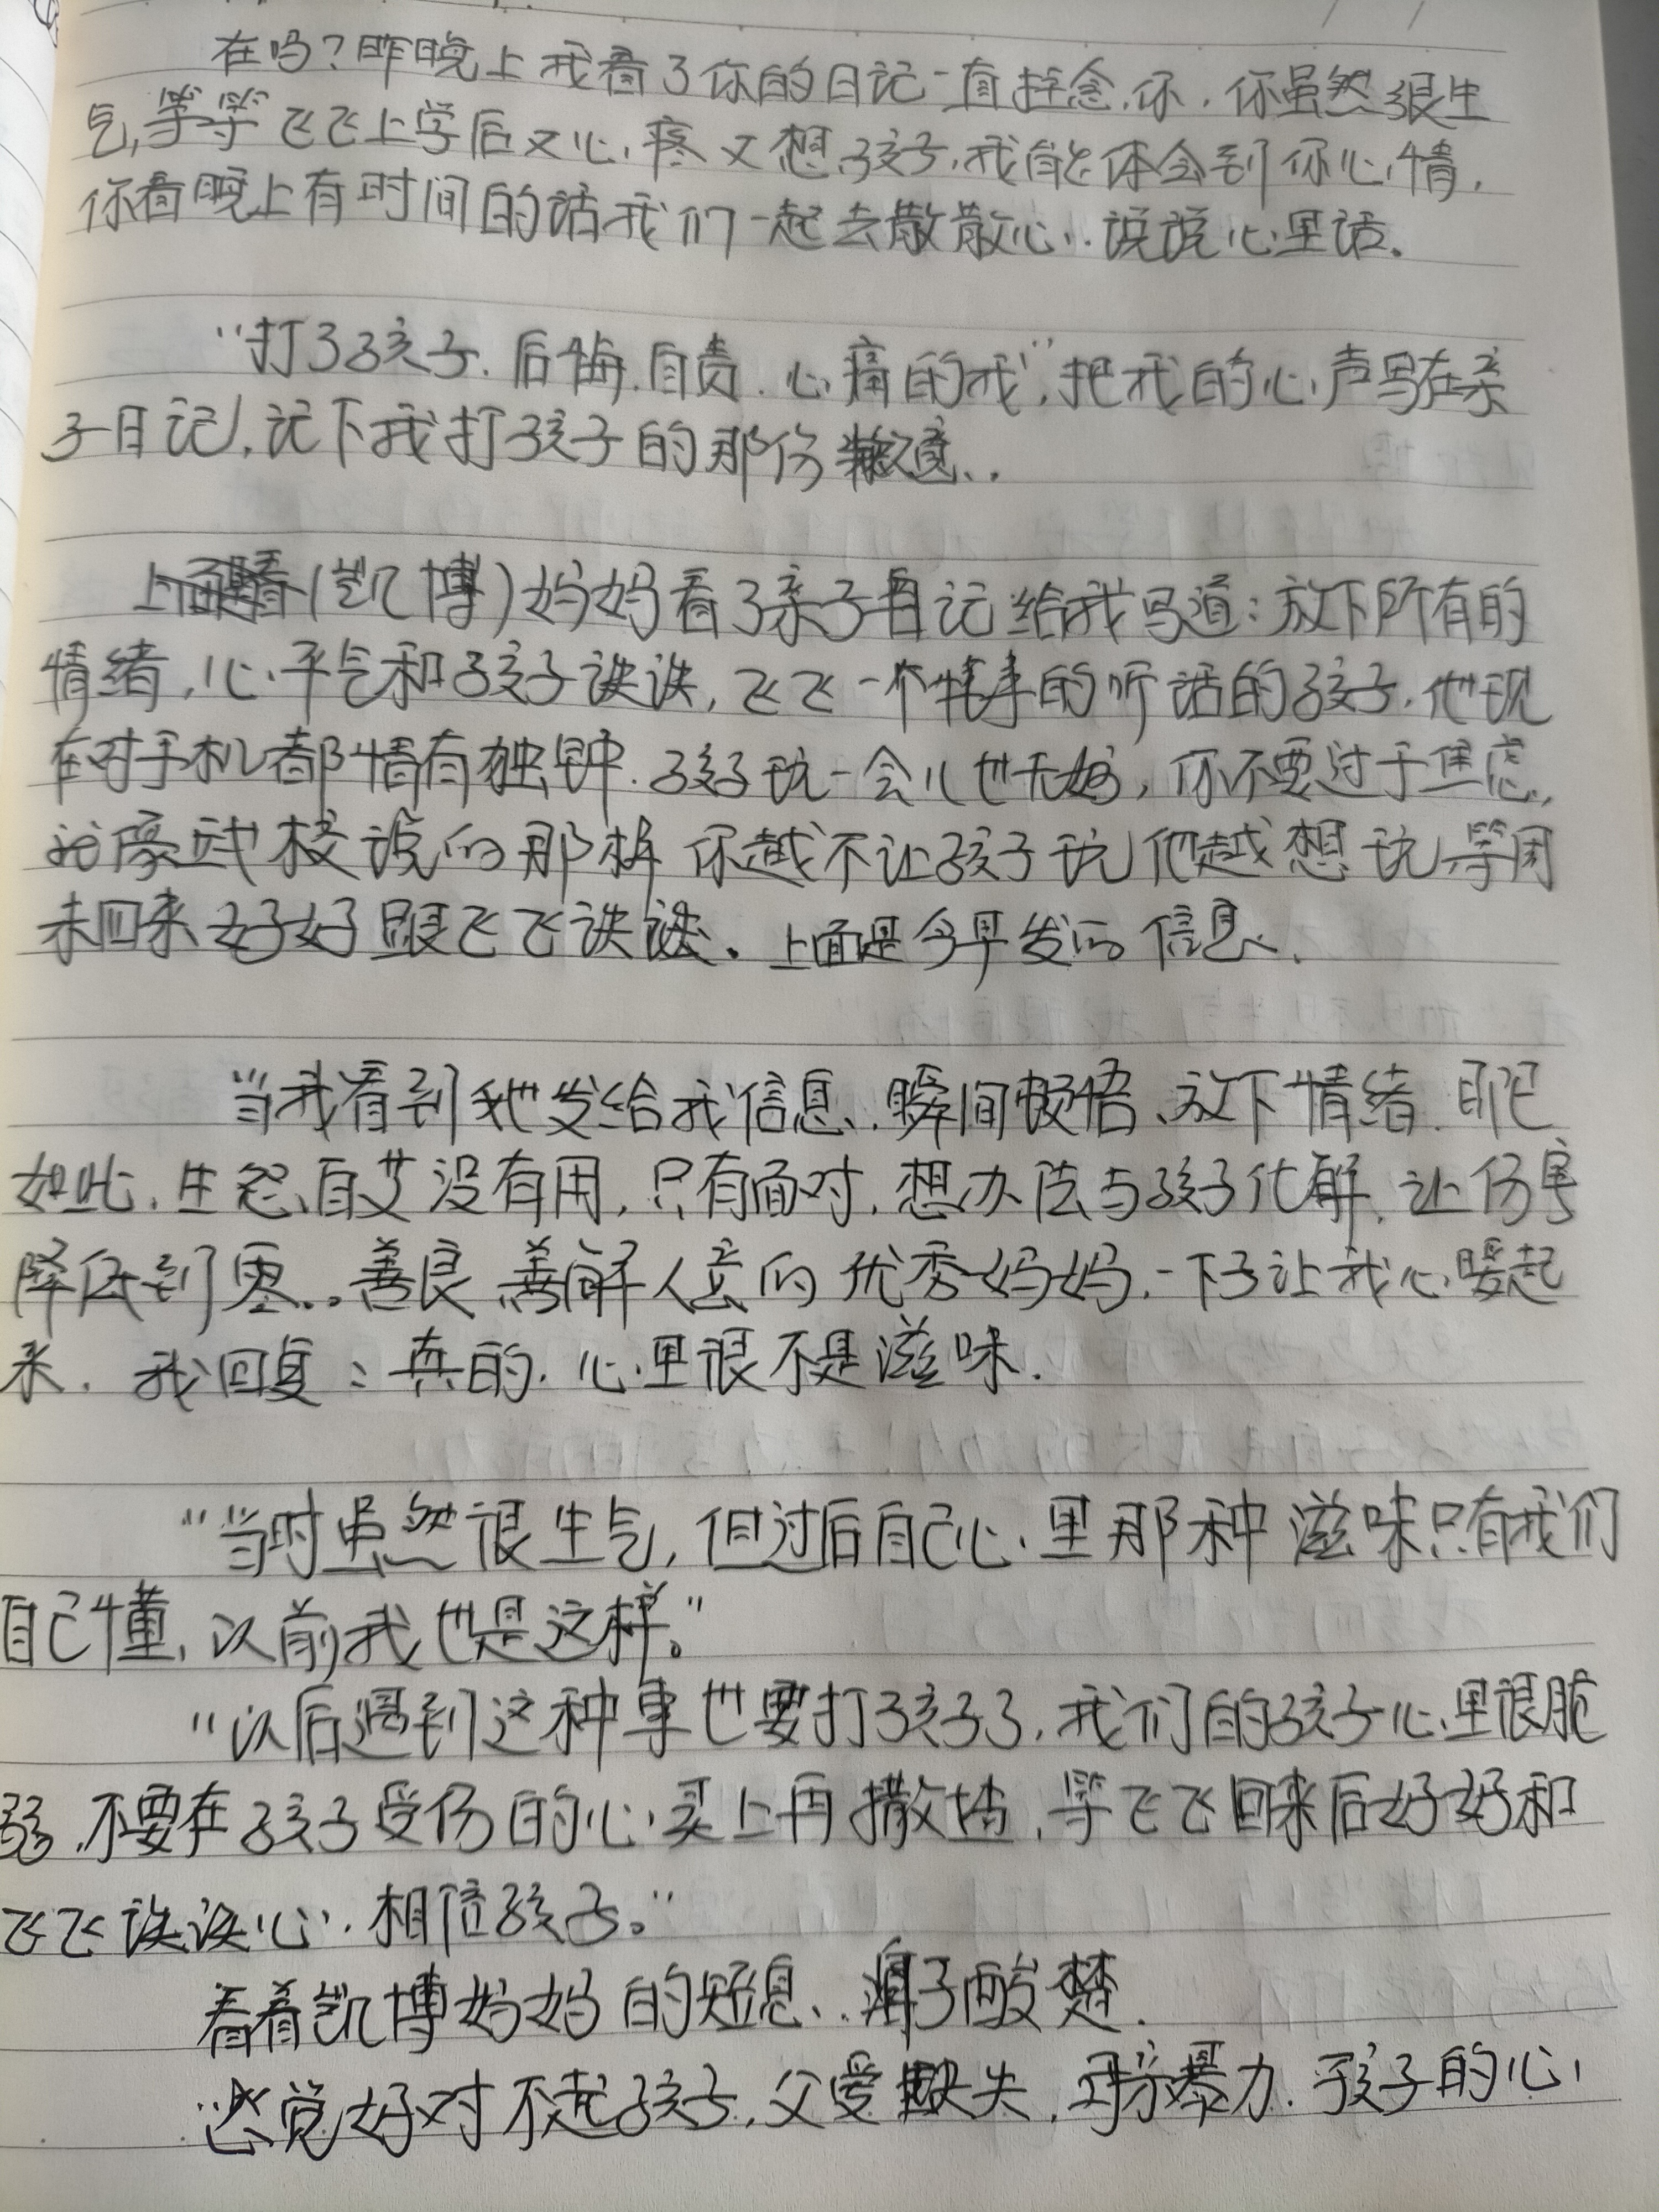 在吗?昨晚上我看了你的日记一直挂念你,你虽然很生
气,等等飞飞上学后又心疼又想孩子,我能体会到你心情,
你看晚上有时间的话我们一起去散散心,说说心里话。
“打了孩子.后悔.自责.心痛的我”,把我的心声写在亲
子日记,记下我打孩子的那份歉意..
上面(凯博)妈妈看了亲子日记给我写道:放下所有的
情绪,心平气和孩子谈谈,飞飞一个懂事的听话的孩子,他现
在对手机都情有独钟.孩子玩一会儿也无妨,你不要过于焦虑,
就像武校说的那样你越不让孩子玩他越想玩,等周
末回来好好跟飞飞谈谈。上面是今早发的信息.
当我看到她发给我信息,瞬间顿悟、放下情绪.即已
如此,生怨自艾没有用,只有面对,想办法与孩子化解,让伤害
降低到零..善良善解人意的优秀妈妈,一下子让我心暖起
来.我回复:真的.心里很不是滋味.
“当时虽然很生气,但过后自己心里那种滋味只有我们
自己懂,以前我也是这样。”
“以后遇到这种事也要打孩子了,我们的孩子心里很脆
弱.不要在孩子受伤的心灵上再撒盐,等飞飞回来后好好和
飞飞谈谈心,相信孩子。”
看着凯博妈妈的短息..鼻子酸楚.
总觉好对不起孩子,父爱缺失,母亲暴力.孩子的心